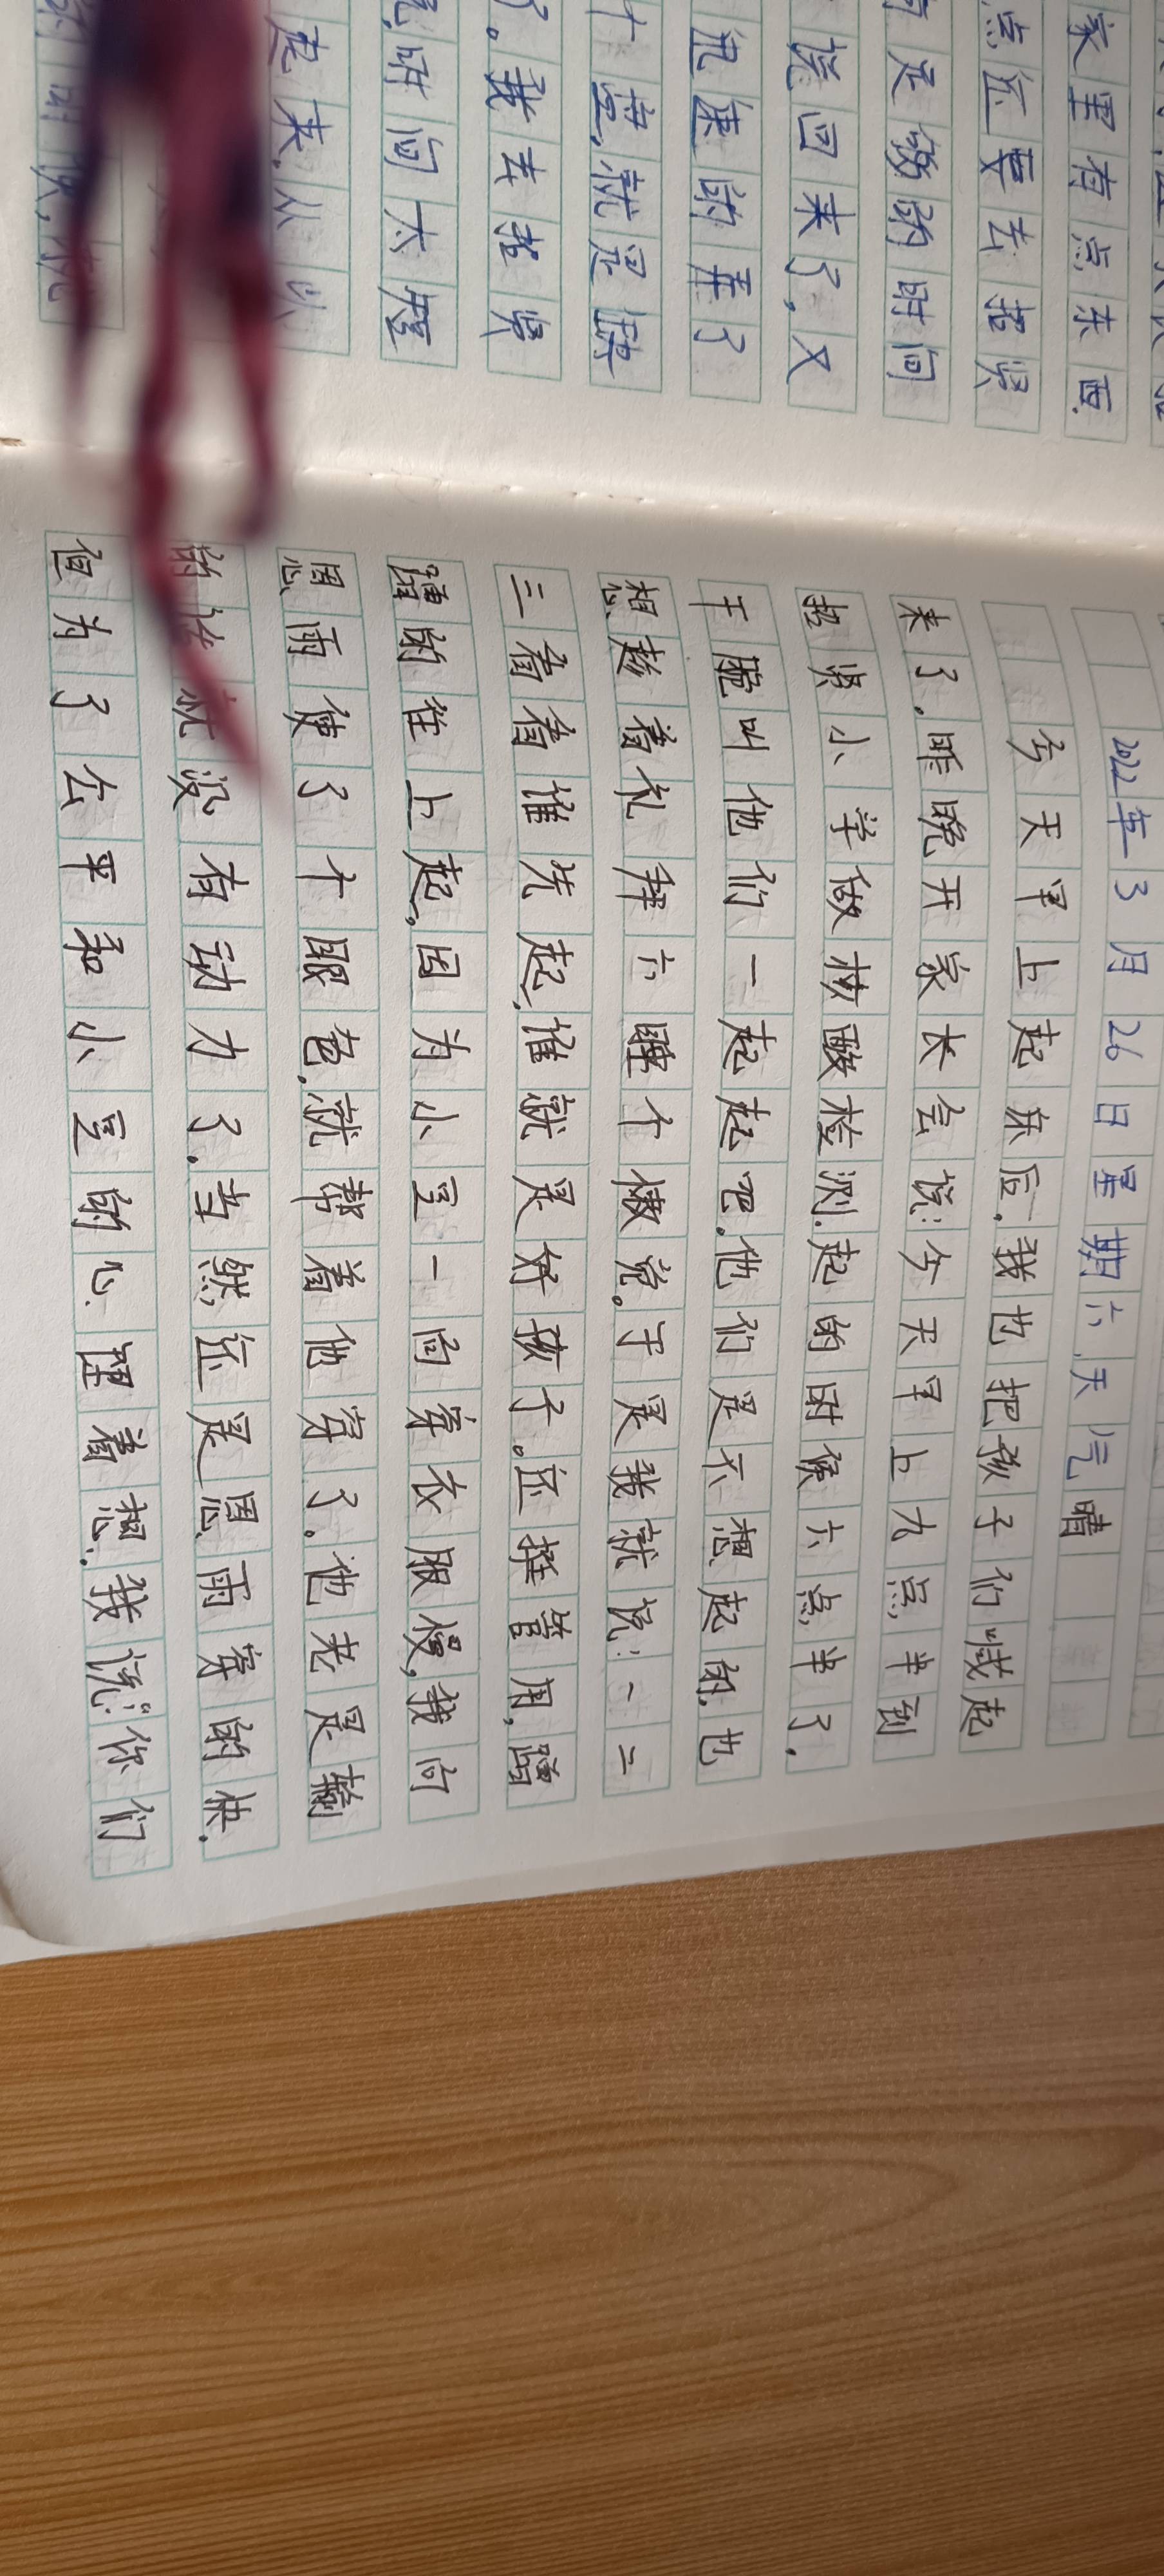 家里有点东西.
点还要去招贤
足够的时间
说回来了,又
速的弄了
就是
了。我去招贤
时间太
起来,从以
2022年3月26日星期六 天气晴
今天早上起床后,我也把孩子们喊起
来了.昨晚开家长会说:今天早上九点半到
招贤小学做核酸检测.起的时候六点半了.
干脆叫他们一起起吧.他们是不想起的.也
想趁着礼拜六睡个懒觉。于是我就说:一二
三看看谁先起,谁就是好孩子。还挺管用,蹭
蹭的往上起,因为小豆一向穿衣服慢,我向
恩雨使了个眼色,就帮着他穿了.他老是输
的话就没有动力了.当然还是恩雨穿的快.
但为了公平和小豆的心理着想.我说:"你们